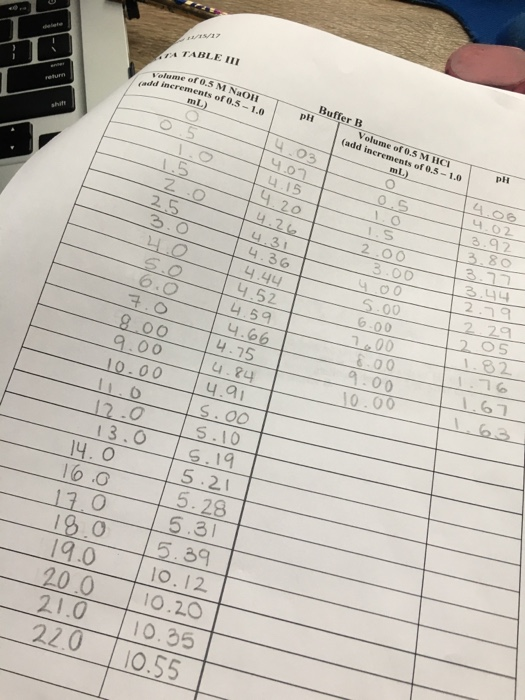 11/15/17
TA TABLE III
Buffer B
Volume of 0.5 M NaOH
(add increments of 0.5 – 1.0
mL)
pH
Volume of 0.5 M HCl
(add increments of 0.5 – 1.0
mL)
pH
0 4.03 0 4.06
0.5 4.07 0.5 4.02
1.0 4.15 1.0 3.92
1.5 4.20 1.5 3.80
2.0 4.26 2.00 3.77
2.5 4.31 3.00 3.44
3.0 4.36 4.00 2.79
4.0 4.44 5.00 2.29
5.0 4.52 6.00 2.05
6.0 4.59 7.00 1.82
7.0 4.66 8.00 1.76
8.00 4.75 9.00 1.67
9.00 4.84 10.00 1.63
10.00 4.91
11.0 5.00
12.0 5.10
13.0 5.19
14.0 5.21
16.0 5.28
17.0 5.31
18.0 5.39
19.0 10.12
20.0 10.20
21.0 10.35
22.0 10.55
delete
enter
return
shift